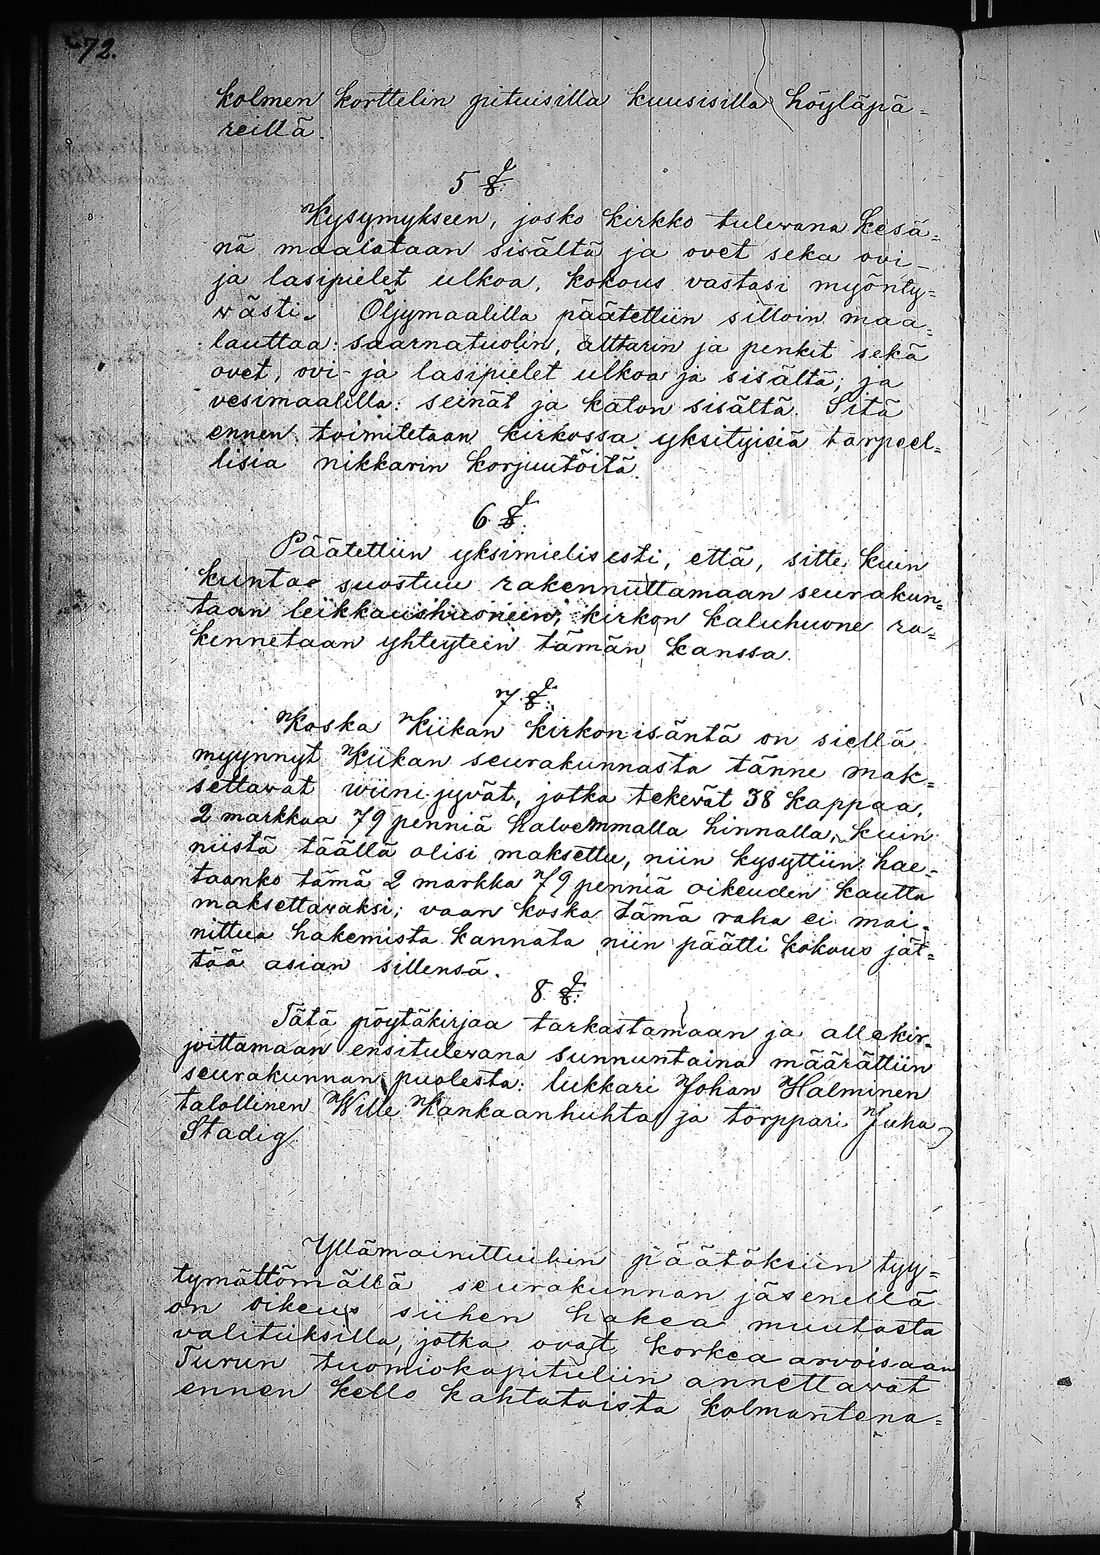 72.
kolmen korttelin pituisilla kuusisilla höyläpä-
reillä.
5 §.
Kysymykseen, josko kirkko tulewana kesä=
nä maalataan sisältä ja ovet sekä ovi-
ja lasipielet ulkoa, kokous vastasi myönty=
västi. Öljymaalilla päätettiin silloin maa=
lauttaa: saarnatuolin, alttarin ja penkit sekä
ovet, ovi- ja lasipielet ulkoa ja sisältä; ja
vesimaalilla: seinät ja katon sisältä. Sitä
ennen toimitetaan kirkossa yksityisiä tarpeel=
lisia nikkarin korjuutöitä.
6 §.
Päätettiin yksimielisesti, että, sitte kuin
kunta suostuu rakennuttamaan seurakun=
taan leikkaushuoneen, kirkon kaluhuone ra=
kennetaan yhteyteen tämän kanssa.
7 §.
Koska Kiikan kirkonisäntä on siellä
myynnyt Kiikan seurakunnasta tänne mak=
settavat wiinijyvät, jotka tekevät 38 kappaa,
2 markkaa 79 penniä halvemmalla hinnalla, kuin
niistä täällä olisi maksettu, niin kysyttiin: hae-
taanko tämä 2 markka 79 penniä oikeuden kautta
maksettavaksi; vaan koska tämä raha ei mai-
nittua hakemista kannata niin päätti kokous jät=
tää asian sillensä.
8 §.
Tätä pöytäkirjaa tarkastamaan ja allekir-
joittamaan ensitulevana sunnuntaina määrättiin
seurakunnan puolesta: lukkari Johan Halminen
talollinen Wille Kankaanhuhta ja torppari Juha
Stadig.
Yllämainittuihin päätöksiin tyy=
tymättömällä seurakunnan jäsenellä
on oikeus siihen hakea muutosta
valituksilla, jotka ovat korkea arvoisaan
Turun tuomiokapituliin annettavat
ennen kello kahtatoista kolmantena=